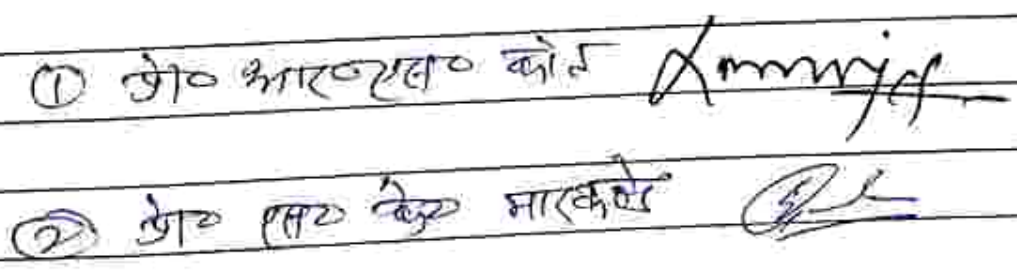 ① प्रो० आर०एस० कोन
② प्रो० एस० के० मारकण्डे